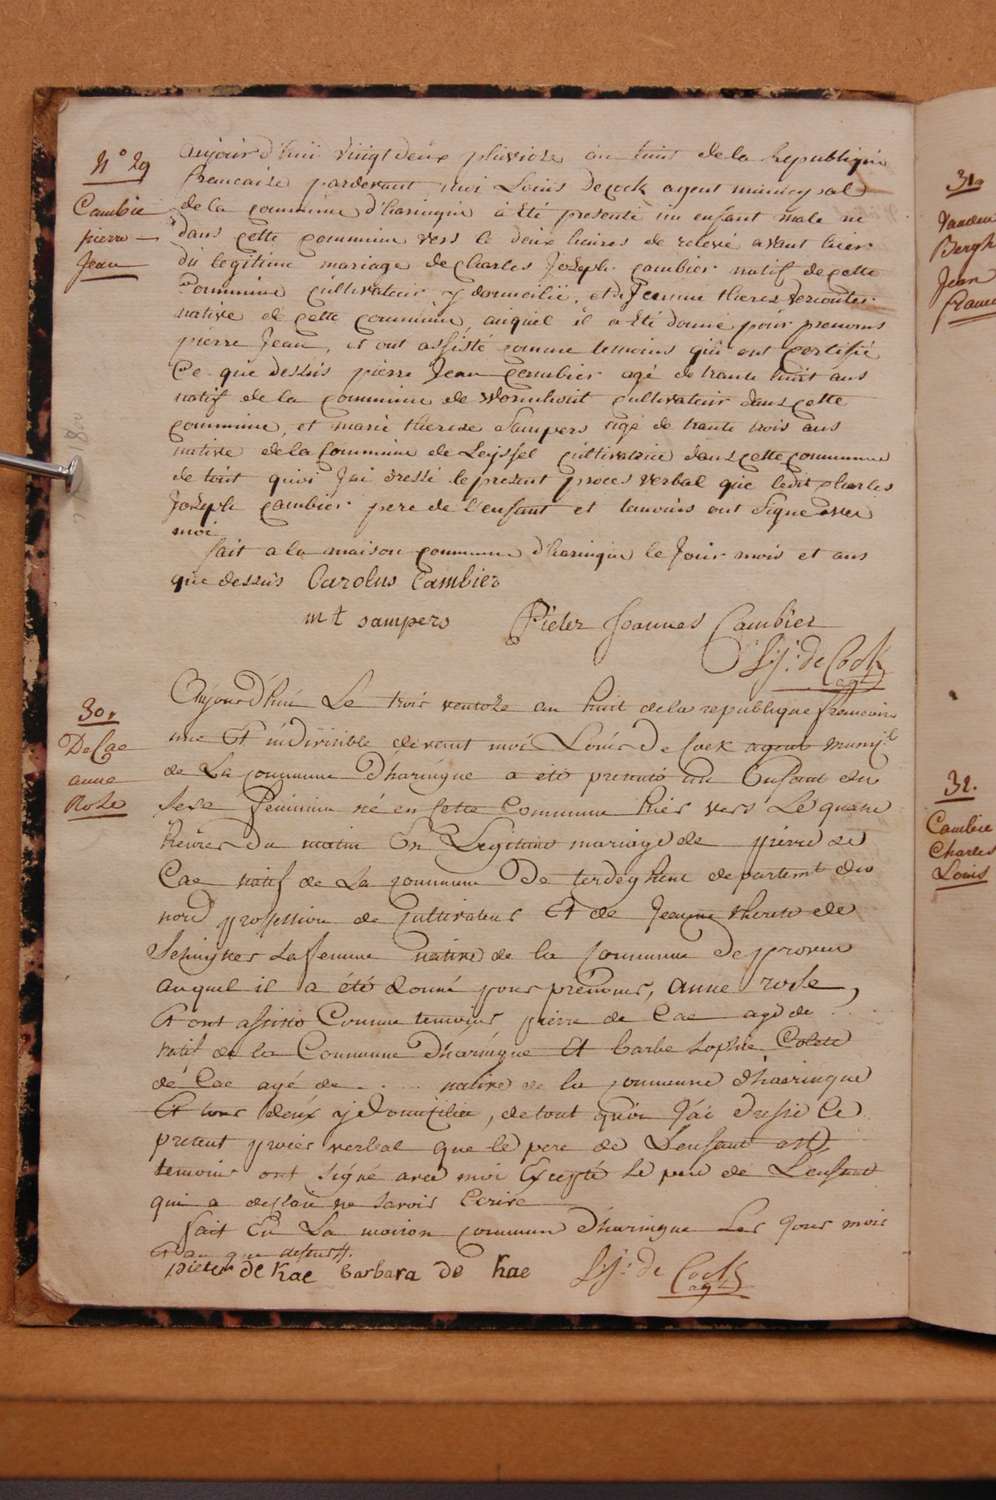 N° 29
Cambie
pierre
Jean
aujourd'huÿ vingt deux pluviose an huit de la Republique
francaise pardevant moi Louis Decock agent municipal
de la commune d'haringue à Eté presenté un enfant male né
dans cette commune vers le deux heures de relevé avant hier
du legitime mariage de charles Joseph cambier natif de cette
commune cultivateur y domicilié, et de Jeanne therese
native de cette commune, auquel il a Eté donné pour prenoms
pierre Jean, et ont assisté comme temoins qui ont certifié
Ce que dessus pierre Jean cambier agé de trante huit ans
natif de la commune de Wormhout cultivateur dans cette
commune, et marie therese Sampers agé de trante trois ans
native de la commune de Leysfel cultivatrice dans cette commune
de tout quoi J'ai dressé le present proces verbal que ledit charles
Joseph cambier pere de l'enfant et temoins ont signé avec
moi
fait a la maison commune d'haringue le Jour mois et ans
que dessus Carolus Cambier
mt sampers Pieter Joannes Cambier
de Cock
agt
30.
De Cae
anne
Rose
Aujourd'hui Le trois ventose an huit de la republique francaise
une Et indivisible devant moi Louis De Cock agent munipl
de La commune D'haringue a été presenté un Enfant du
sexe feminin né en cette Commune hier vers Le quatre
heures Du matin En Legitime mariage de pierre de
Cae natif de La commune De terdeghem departemt du
nord profession de Cultivateur Et de Jeanne therese de
La femme native de la Commune De proven
auquel il a été donné pour prénoms, anne rose,
Et ont assisté Comme temoins pierre de Cae agé de . . .
natif de la Commune D'haringue Et barbe Sophie Colete
de Cae agé de . . . . native de la commune d'haeringue
Et tous deux y Domicilié, de tout quoi J'ai dressé Le
present procès verbal que le pere de L'enfant et
temoins ont signé avec moi Excepté Le pere de L'enfant
qui a declaré ne savoir Ecrire
fait En La maison commun D'haringue Les Jour mois
Et an que dessus.
pieter de kae barbara de kae de Cock
agt
31.
Vanden
Bergh
Jean
32.
Cambie
Charles
Louis